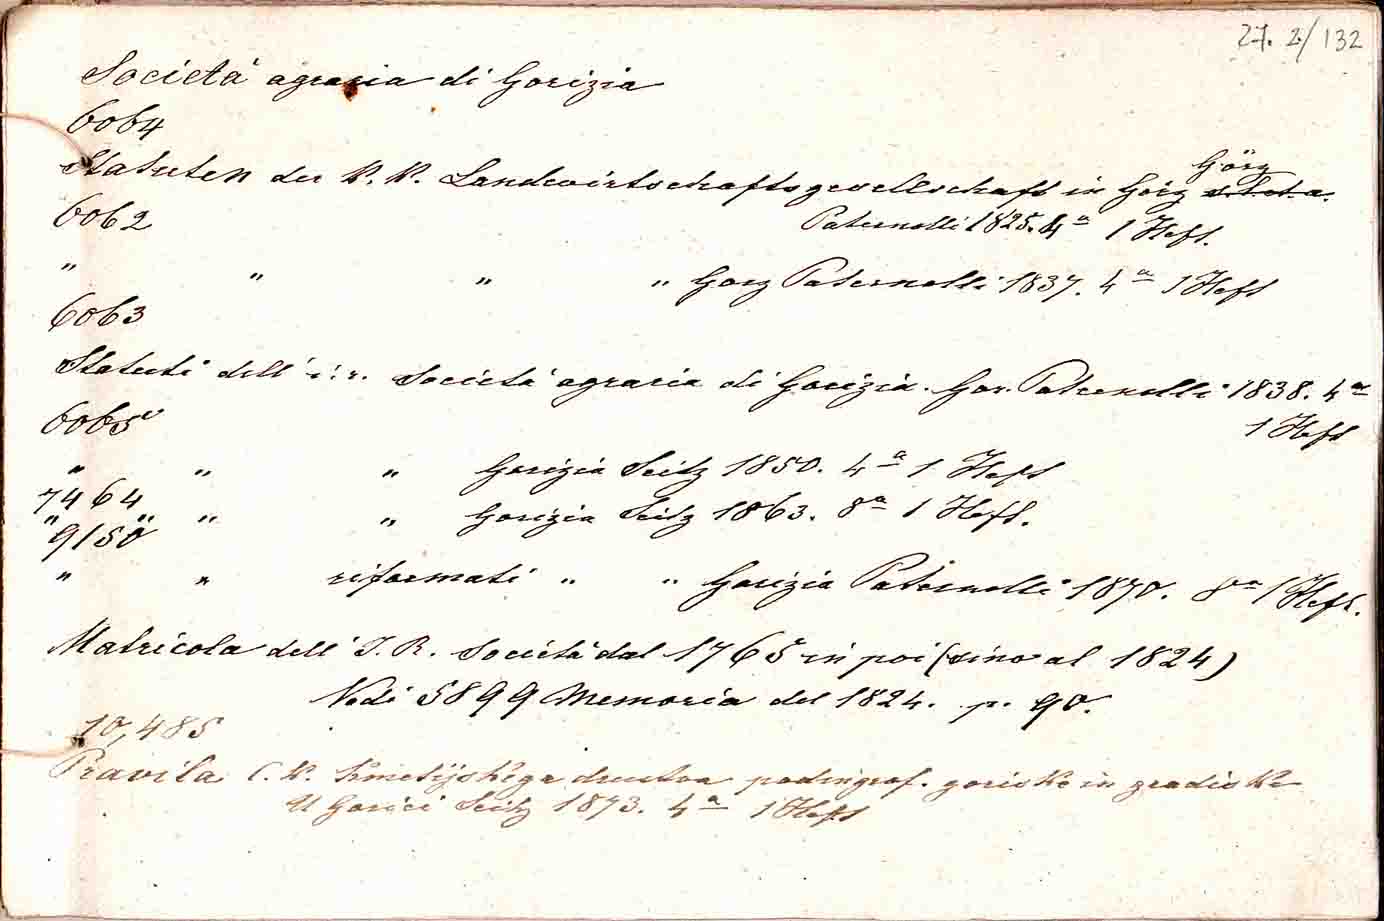 27. 2/132
Società agraria di Gorizia
6064
Statuten der K. K. Landwirtschaftsgesellschaft in Görz Görz
6062 Paternolli 1825. 4a 1 Heft.
" " " " Görz Paternolli 1837. 4a 1 Heft
6063
Statuti dell' i: r. Società agraria di Gorizia. Gor. Paternolli 1838. 4a
6065 1 Heft
" " " Gorizia Seitz 1850. 4a 1 Heft
7464
" " " " Gorizia Seitz 1863. 8a 1 Heft.
9150
" " riformati " " Gorizia Paternolli 1870. 8a 1 Heft.
Matricola dell' I. R. Società dal 1765 in poi (sino al 1824)
Vedi 5899 Memoria del 1824. p. 90.
10,485
Pravila C. K. kmetijskega drustva goriske in gradiske
U Gorici Seitz 1873. 4a 1 Heft